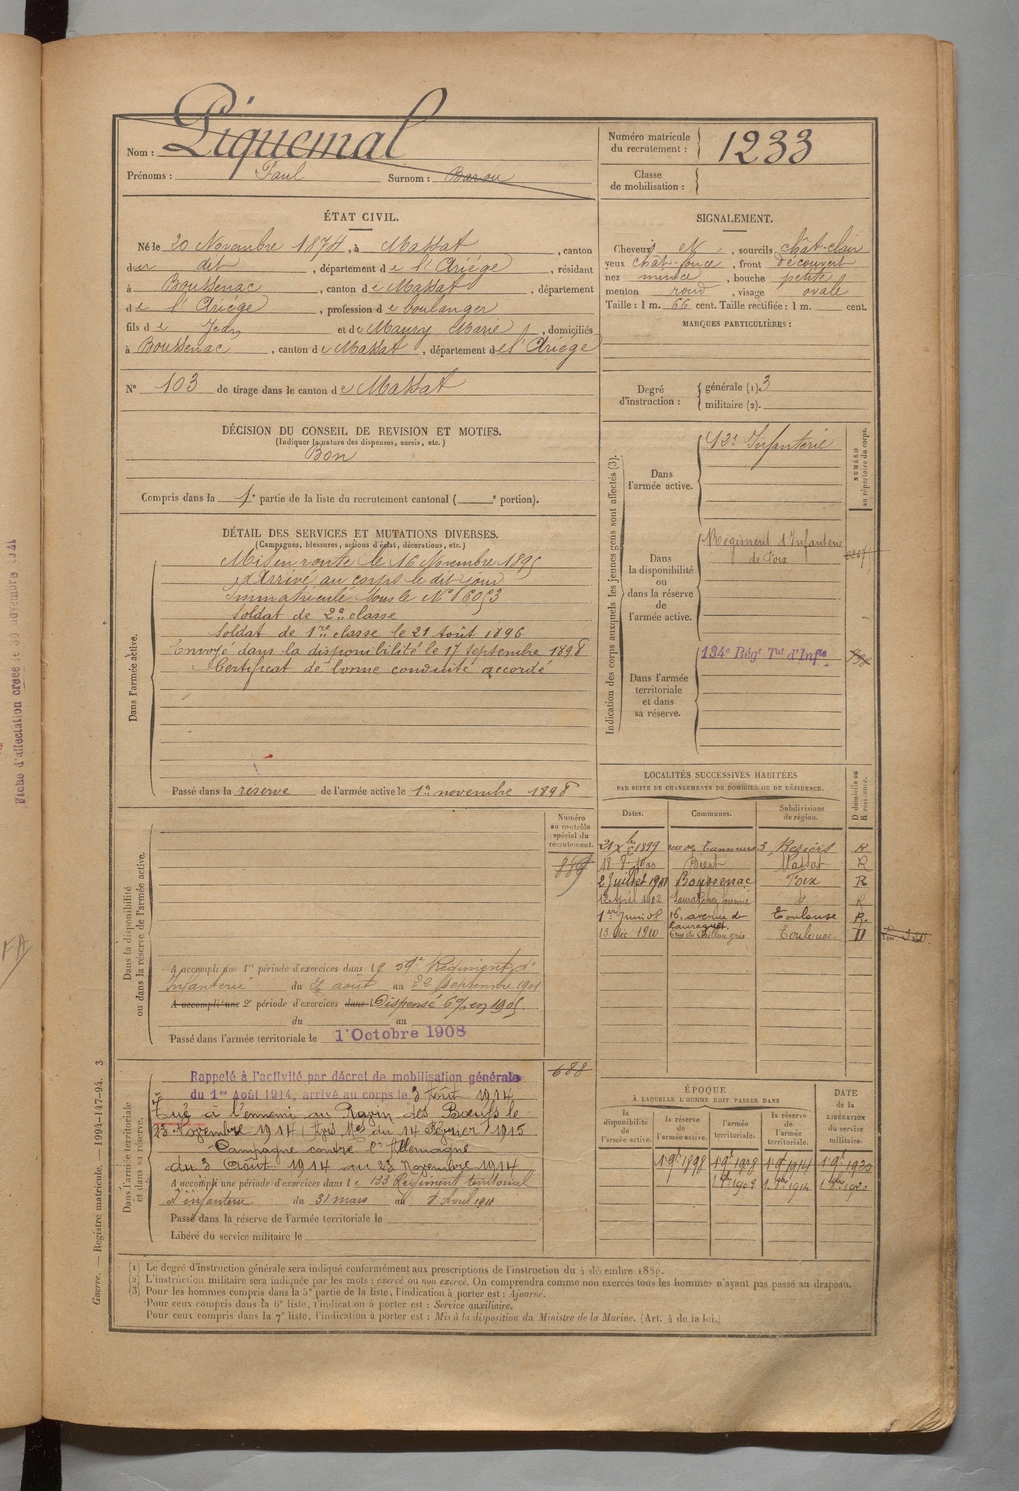 Piquemal
Nom :
Prénoms : Paul Surnom : Barou
Numéro matricule du recrutement : 1233
Classe de mobilisation :
ÉTAT CIVIL.
Né le 20 Novembre 1874, à Massat, canton
dudit, département de l'Ariège, résidant
à Boussenac, canton de Massat, département
de l'Ariège, profession de boulanger
fils de Jean et de Maury Marie, domiciliés
à Boussenac, canton de Massat, département de l'Ariège
N° 103 de tirage dans le canton de Massat
SIGNALEMENT.
Cheveux N, sourcils chât-clair
yeux chât-foncé, front découvert
nez mince, bouche petite
menton rond, visage ovale
Taille : 1 m. 66 cent. Taille rectifiée : 1 m. cent.
MARQUES PARTICULIÈRES :
Degré d'instruction : générale (1). 3
militaire (2).
DÉCISION DU CONSEIL DE REVISION ET MOTIFS.
(Indiquer la nature des dispenses, sursis, etc.)
Bon
Compris dans la 1e partie de la liste du recrutement cantonal ( e portion).
DÉTAIL DES SERVICES ET MUTATIONS DIVERSES.
(Campagnes, blessures, actions d'éclat, décorations, etc.)
Dans l'armée active.
Mis en route le 16 Novembre 1895
Arrivé au corps le dit jour
Immatriculé sous le N° 16053
Soldat de 2e classe
Soldat de 1re classe le 21 août 1896
Envoyé dans la disponibilité le 17 septembre 1898
Certificat de bonne conduite accordé
Passé dans la réserve de l'armée active le 1er novembre 1898
Indication des corps auxquels les jeunes gens sont affectés (3).
NUMÉRO au répertoire du corps.
Dans l'armée active.
Infanterie
Dans la disponibilité ou dans la réserve de l'armée active.
Régiment d'Infanterie
de Foix
Dans l'armée territoriale et dans sa réserve.
134e Régt Tal d'Infie
LOCALITÉS SUCCESSIVES HABITÉES
PAR SUITE DE CHANGEMENTS DE DOMICILE OU DE RÉSIDENCE.
Dates. Communes. Subdivisions de région. D domicile ou R résidence.
Béziers R
Biert Massat R
2 Juillet 1901 Boussenac Foix R
R
16, avenue de Lauraguet Toulouse R
13 Déc 1910 Toulouse D
Dans la disponibilité ou dans la réserve de l'armée active.
Numéro au contrôle spécial du recrutement.
A accompli une 1re période d'exercices dans le 59e Régiment d'
Infanterie du août au 22 septembre 1901
A accompli une 2e période d'exercices dans l Dispensé en 1905
du au
Passé dans l'armée territoriale le 1er Octobre 1908
688
Dans l'armée territoriale et dans sa réserve.
Rappelé à l'activité par décret de mobilisation générale
du 1er Août 1914, arrivé au corps le 3 août 1914
Tué à l'ennemi au Ravin des Bœufs le
23 Novembre 1914 Avis Mel du 14 Février 1915
Campagne contre l'Allemagne
du 3 Août 1914 au 23 Novembre 1914
A accompli une période d'exercices dans le 133 Régiment territorial
d'infanterie du 31 mars au 8 Avril 1911
Passé dans la réserve de l'armée territoriale le
Libéré du service militaire le
ÉPOQUE
À LAQUELLE L'HOMME DOIT PASSER DANS
la disponibilité de l'armée active. la réserve de l'armée active. l'armée territoriale. la réserve de l'armée territoriale.
DATE de la LIBÉRATION du service militaire.
1 9e 1898 1 9e 1908 1 9e 1914 1 9e 1920
(1) Le degré d'instruction générale sera indiqué conformément aux prescriptions de l'instruction du 4 décembre 1889.
(2) L'instruction militaire sera indiquée par les mots : exercé ou non exercé. On comprendra comme non exercés tous les hommes n'ayant pas passé au drapeau.
(3) Pour les hommes compris dans la 5e partie de la liste, l'indication à porter est : Ajourné.
Pour ceux compris dans la 6e liste, l'indication à porter est : Service auxiliaire.
Pour ceux compris dans la 7e liste, l'indication à porter est : Mis à la disposition du Ministre de la Marine. (Art. 4 de la loi.)
Guerre. — Registre matricule. — 1994-147-94. 3
FA